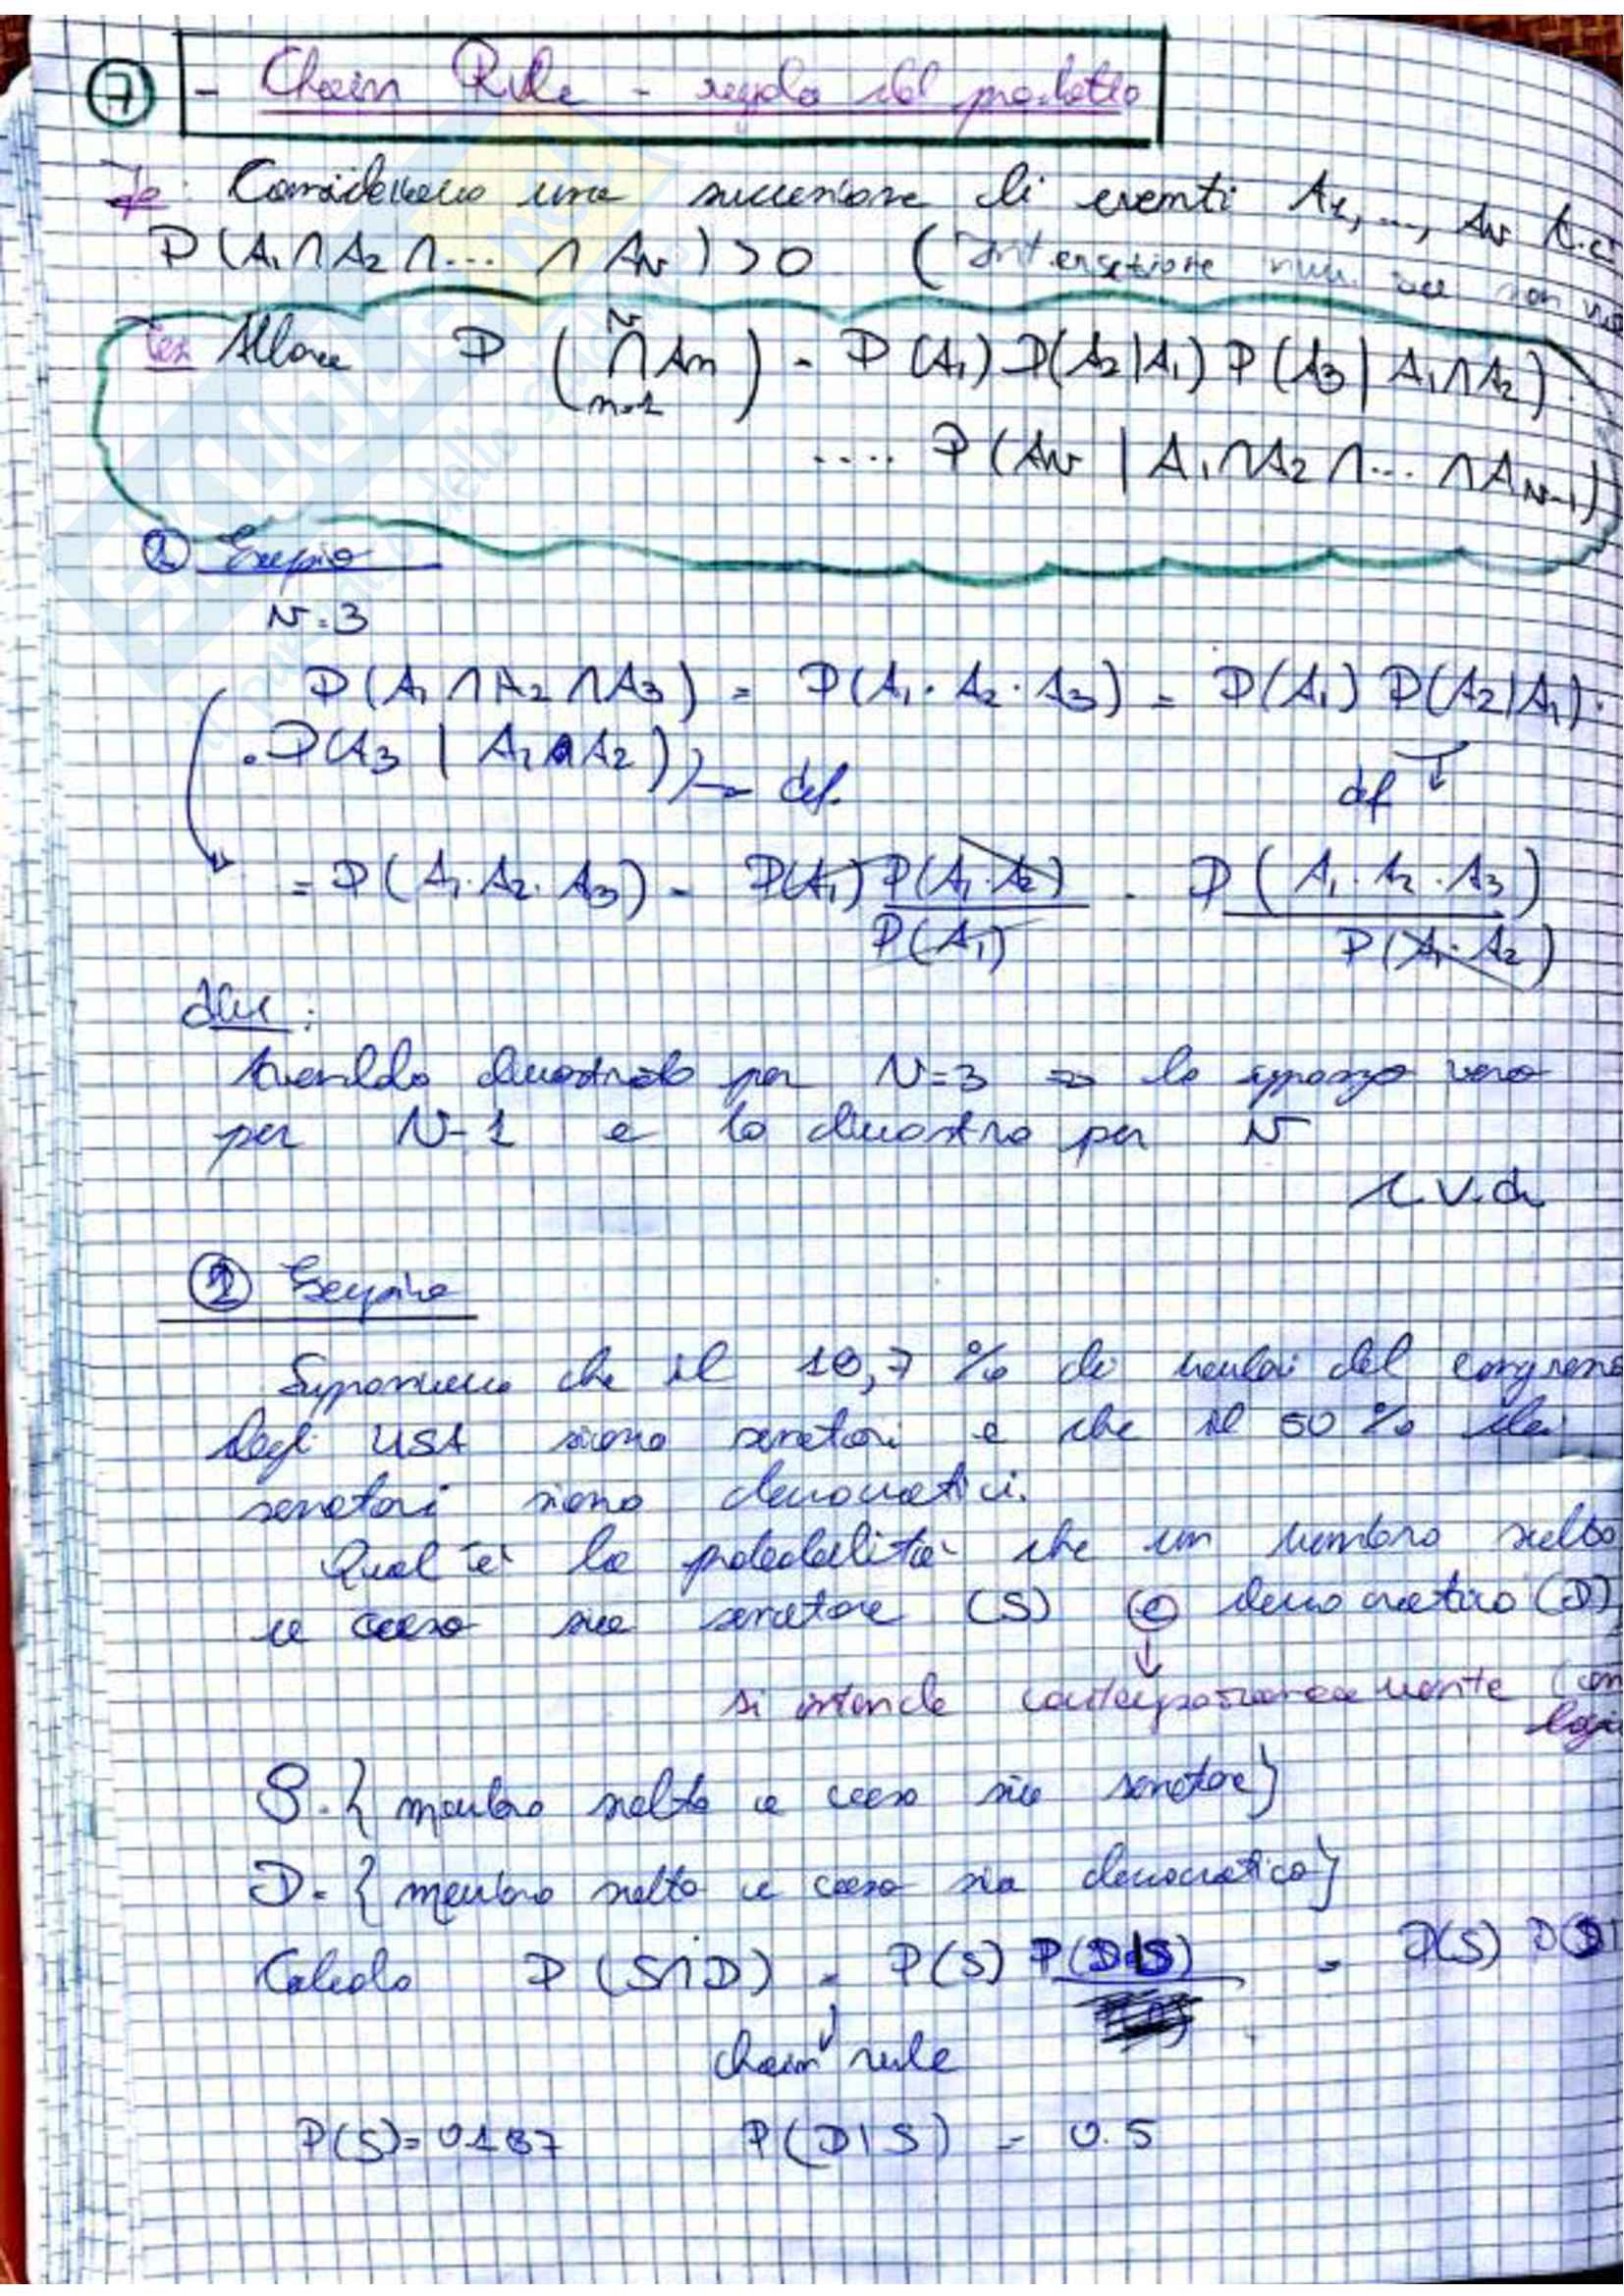 7 - Chain Rule - regola del prodotto
Ip: Consideriamo una successione di eventi A1, ..., AN t.c.
P(A1 ∩ A2 ∩ ... ∩ AN) > 0 (Intersezione non
Tes Allora P(∩ An) = P(A1) P(A2|A1) P(A3 | A1 ∩ A2) ·
N
n=1
.... P(AN | A1 ∩ A2 ∩ ... ∩ AN-1)
1 Esempio
N=3
P(A1 ∩ A2 ∩ A3) = P(A1 · A2 · A3) = P(A1) P(A2|A1) ·
· P(A3 | A1 ∩ A2) → def.
def
= P(A1 · A2 · A3) = P(A1) P(A1 · A2) / P(A1) · P(A1 · A2 · A3) / P(A1 · A2)
dim:
Avendolo dimostrato per N=3 => lo suppongo vero
per N-1 e lo dimostro per N
c.v.d.
2 Esempio
Supponiamo che il 18,7 % di membri del congresso
degli USA siano senatori e che il 50 % dei
senatori siano democratici.
Qual è la probabilità che un membro scelto
a caso sia senatore (S) e democratico (D)
si intende contemporaneamente
S = { membro scelto a caso sia senatore }
D = { membro scelto a caso sia democratico }
Calcolo P(S∩D) = P(S) P(D|S) = P(S) P(D|
chain rule
P(S) = 0.187 P(D|S) = 0.5